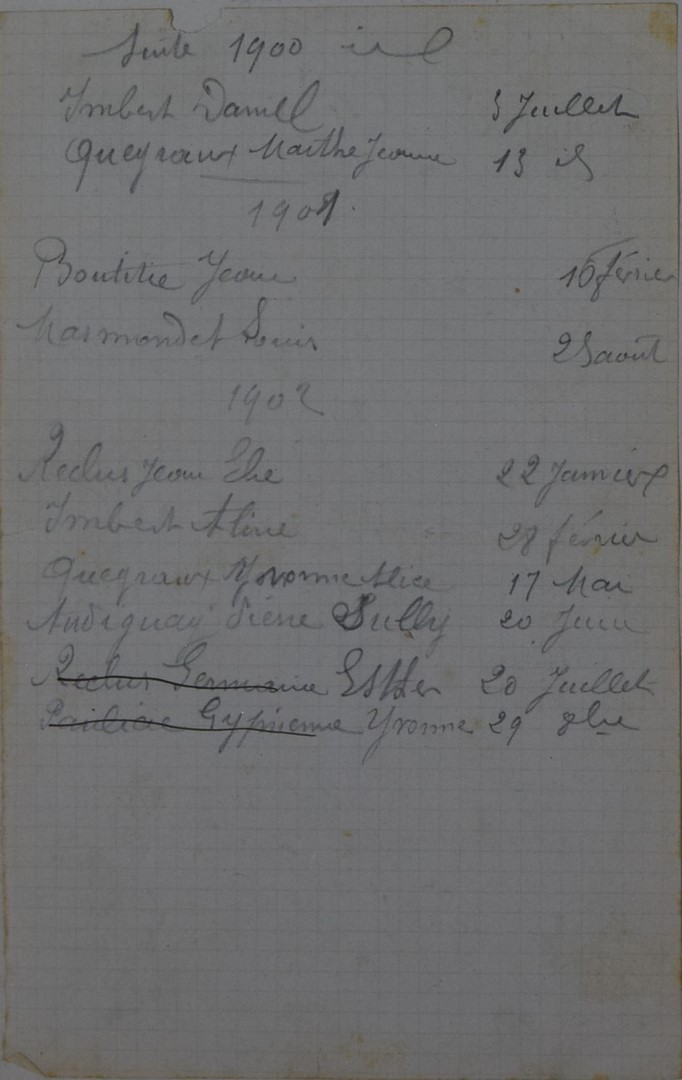 Suite 1900
Imbert Daniel 5 Juillet
Queyraux Marthe Jeanne 13 id
1901.
Boutitie Jean 16 février
Marmondet Louis 25 août
1902
Reclus Jean Elie 22 Janvier
Imbert Aline 28 février
Queyraux Yvonne Alice 17 Mai
Audiguay Pierre Sully 20 Juin
Reclus Germaine Esther 20 Juillet
Yvonne 29 8bre